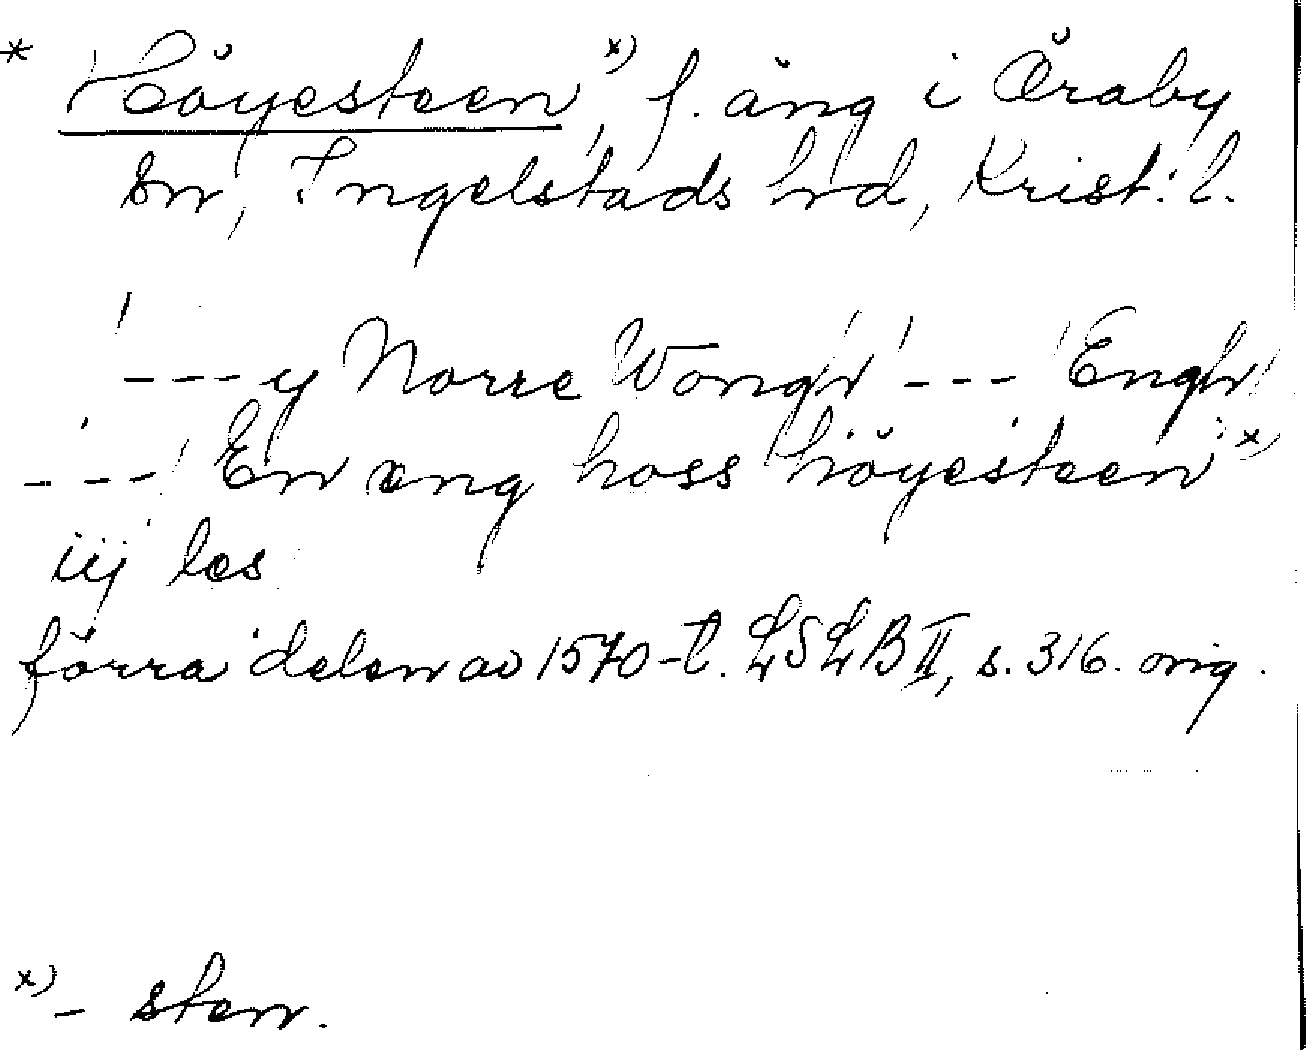 * Höyesteen x), f. äng i Öraby
sn, Ingelstads hd, Krist. l.
--- y Norre Wongh --- Engh
--- En eng hoss höyesteen x)
iij les
förra delen av 1570-t. LSLB II, s. 316. orig.
x) - sten.